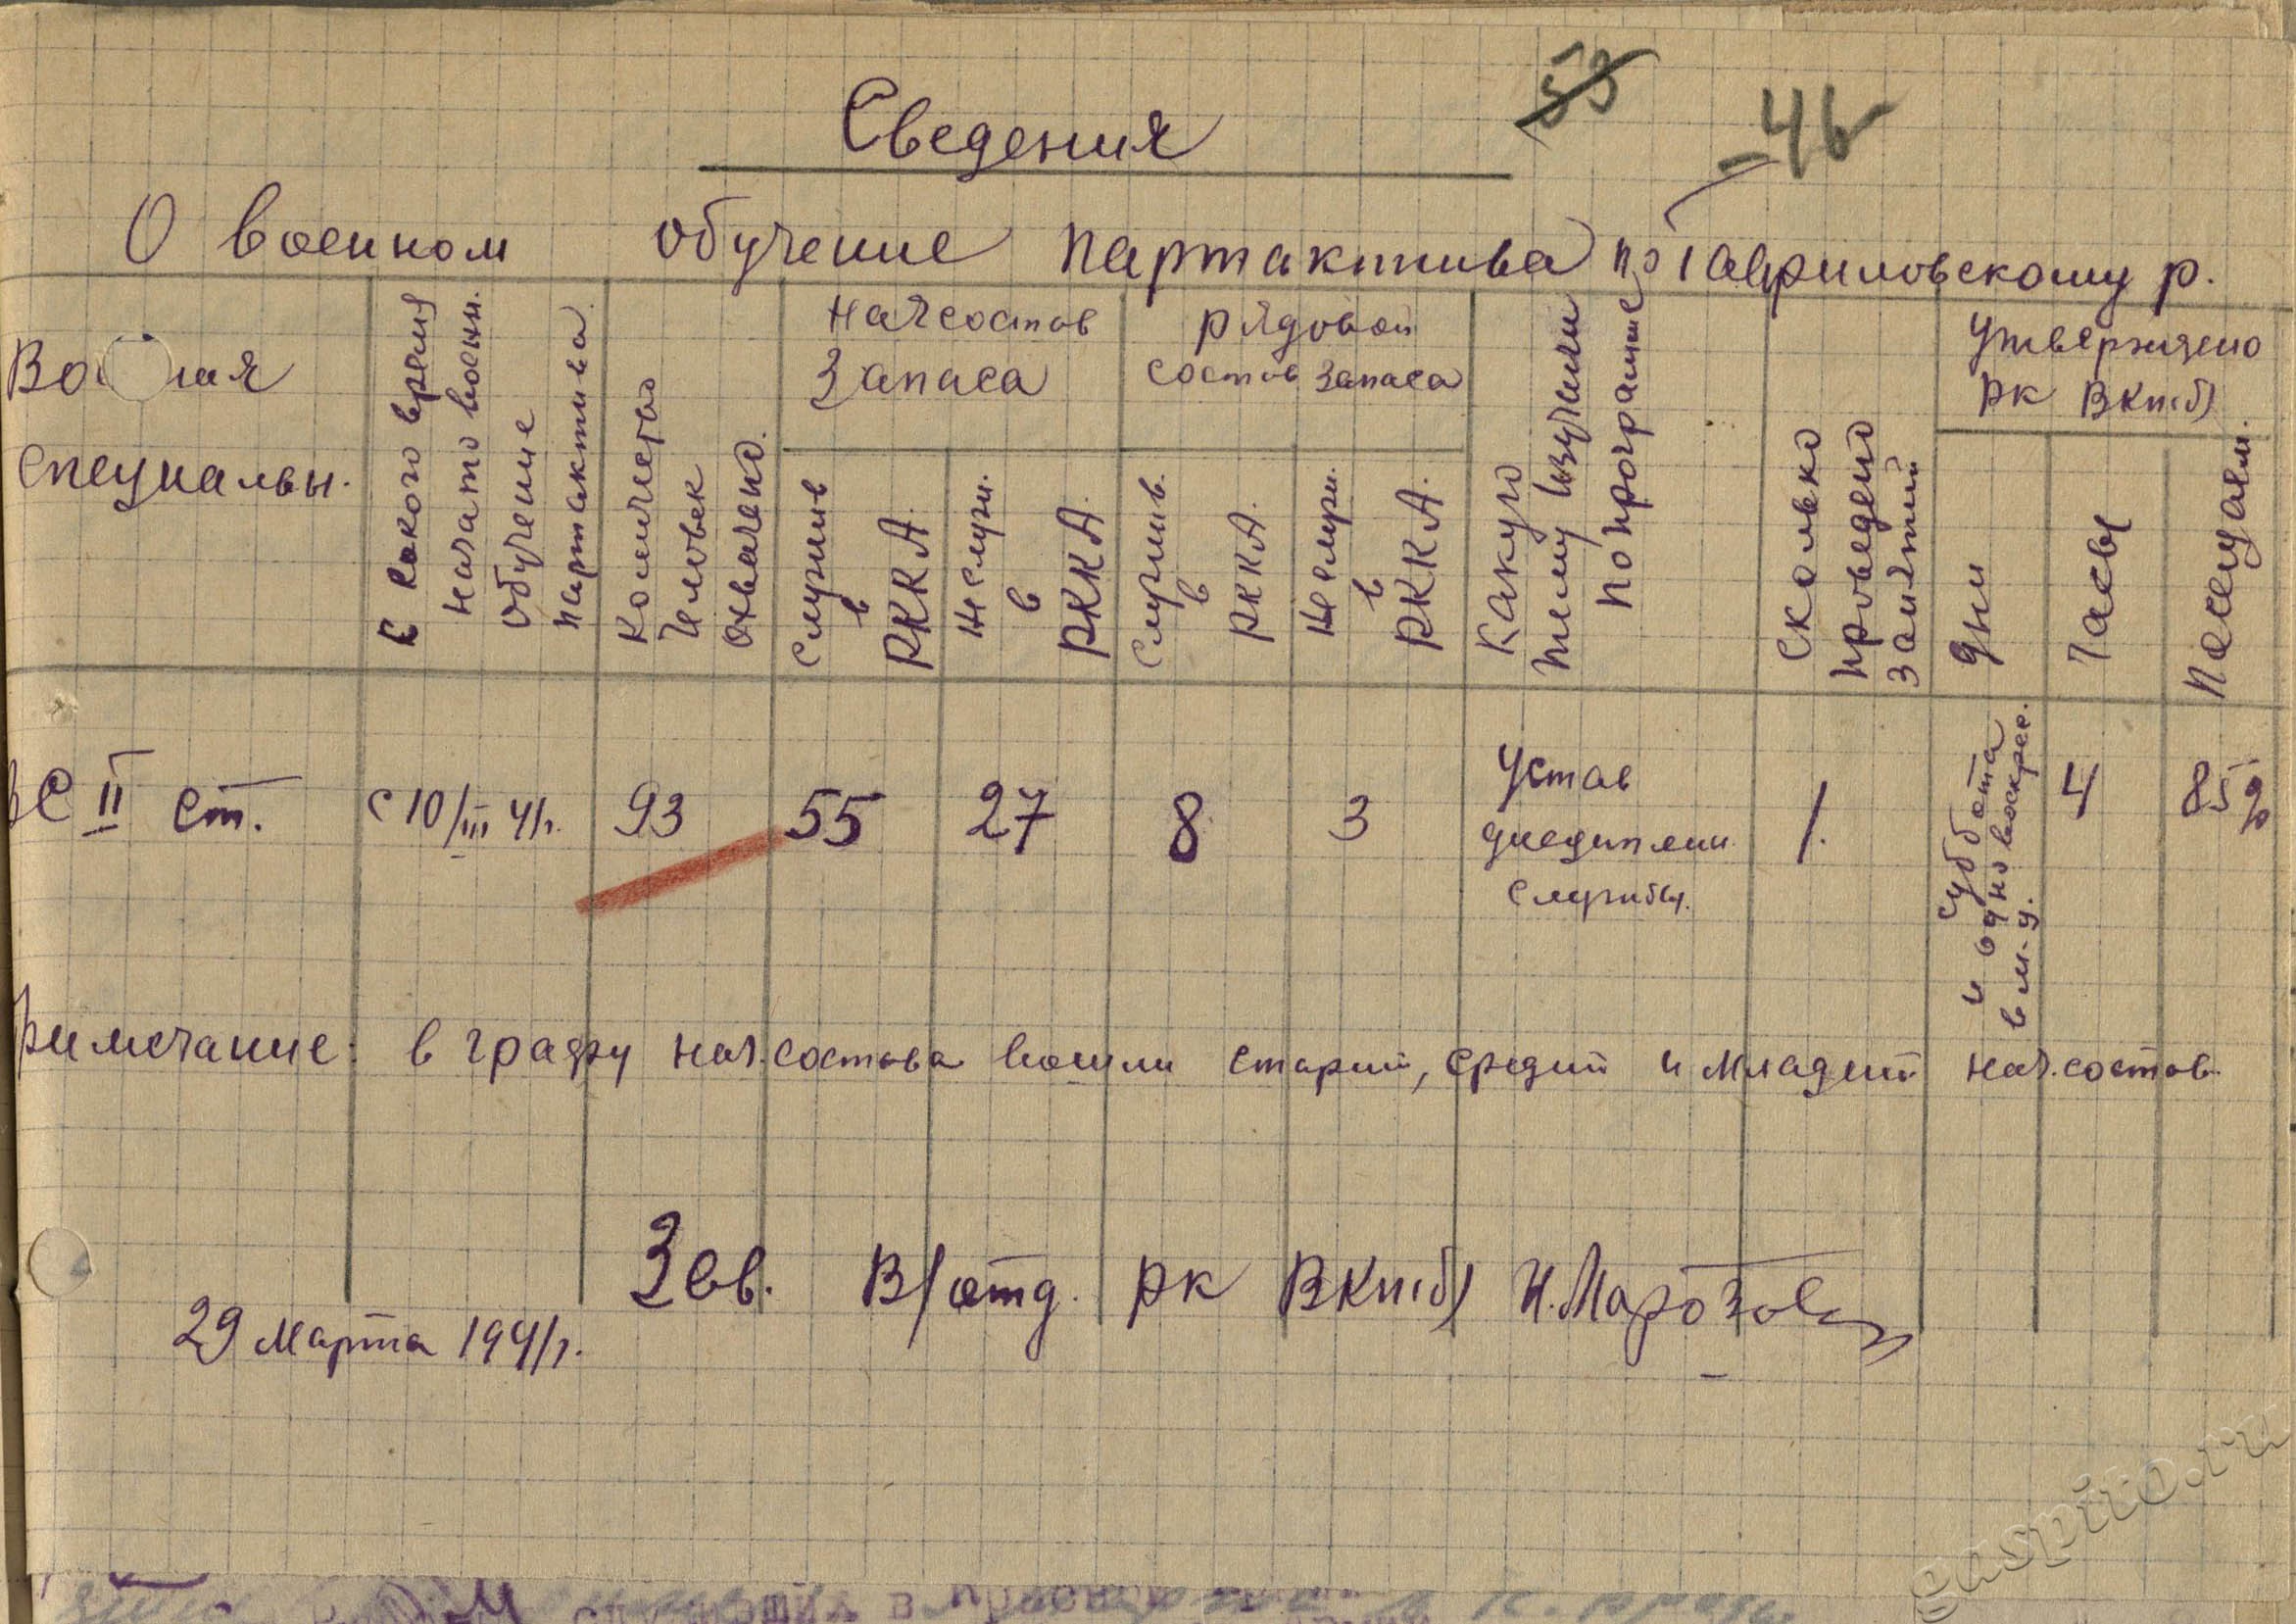 53
46
Сведения
О военном обучение партактива по Гавриловскому р.
Специальн.
С какого время
начато военн.
обучение
партактива.
Количество
человек
охвачено.
Начсостав
Запаса
Служив
в
РККА.
Не служ.
в
РККА
рядовой
состав запаса
Служив.
в
РККА.
Не служ.
в
РККА.
Какую
тему изучили
по программе
Сколько
проведено
занятий
Утверждено
РК ВКП(б)
дни
Часы
Посещаем.
ВС II ст.
с 10/III 41г.
93
55
27
8
3
Устав
дисциплин
службы.
1.
суббота
и одно воскрес.
в м-ц.
4
85%
римечание: в графу нач.состава вошли старши, средий и младший нач.состав.
Зав. В/отд. РК ВКП(б) Н.Марозов
29 Марта 1941г.
gaspito.ru